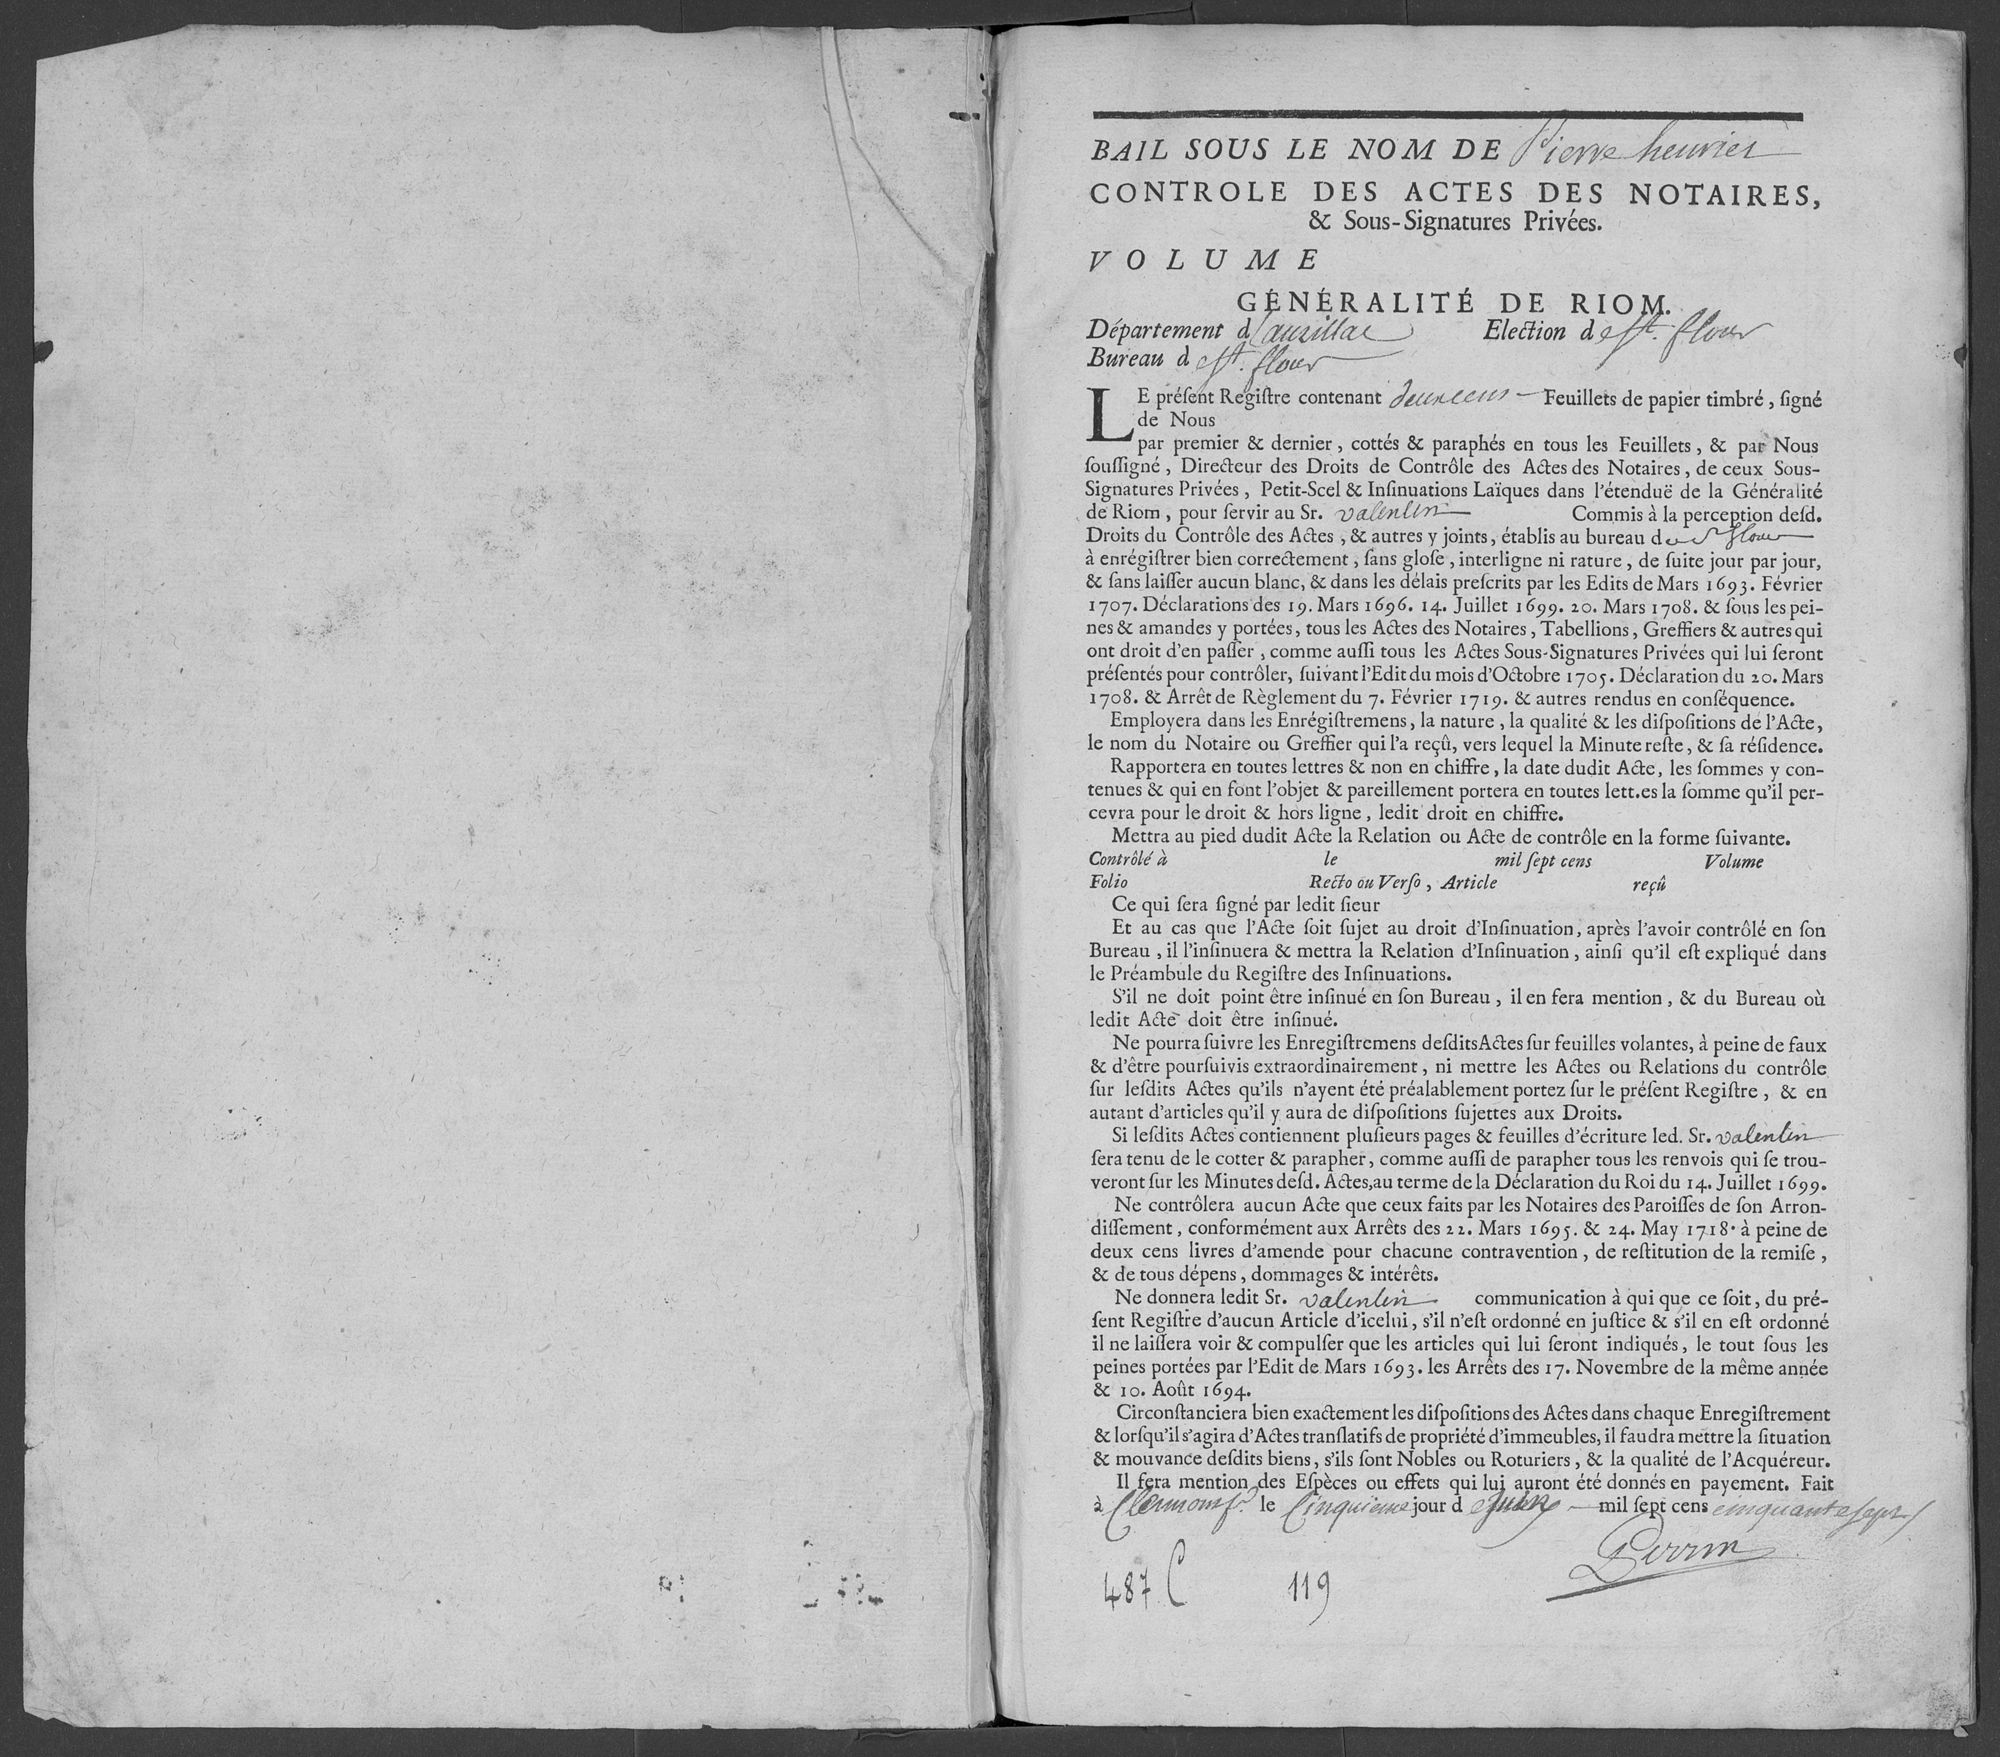 BAIL SOUS LE NOM DE Pierre henriet
CONTROLE DES ACTES DES NOTAIRES,
& Sous-Signatures Privées.
VOLUME
GÉNÉRALITÉ DE RIOM.
Département d'aurillac Election de St. flour
Bureau de St. flour
LE préſent Regiſtre contenant deuxcens Feuillets de papier timbré, ſigné
de Nous
par premier & dernier, cottés & paraphés en tous les Feuillets, & par Nous
ſouſſigné, Directeur des Droits de Contrôle des Actes des Notaires, de ceux Sous-
Signatures Privées, Petit-Scel & Inſinuations Laïques dans l'étenduë de la Généralité
de Riom, pour ſervir au Sr. valentin Commis à la perception deſd.
Droits du Contrôle des Actes, & autres y joints, établis au bureau de St flour
à enrégiſtrer bien correctement, ſans gloſe, interligne ni rature, de ſuite jour par jour,
& ſans laiſſer aucun blanc, & dans les délais preſcrits par les Edits de Mars 1693. Février
1707. Déclarations des 19. Mars 1696. 14. Juillet 1699. 20. Mars 1708. & ſous les pei-
nes & amandes y portées, tous les Actes des Notaires, Tabellions, Greffiers & autres qui
ont droit d'en paſſer, comme auſſi tous les Actes Sous-Signatures Privées qui lui ſeront
préſentés pour contrôler, ſuivant l'Edit du mois d'Octobre 1705. Déclaration du 20. Mars
1708. & Arrêt de Règlement du 7. Février 1719. & autres rendus en conſéquence.
Employera dans les Enrégiſtremens, la nature, la qualité & les diſpoſitions de l'Acte,
le nom du Notaire ou Greffier qui l'a reçû, vers lequel la Minute reſte, & ſa réſidence.
Rapportera en toutes lettres & non en chiffre, la date dudit Acte, les ſommes y con-
tenues & qui en font l'objet & pareillement portera en toutes lett.es la ſomme qu'il per-
cevra pour le droit & hors ligne, ledit droit en chiffre.
Mettra au pied dudit Acte la Relation ou Acte de contrôle en la forme ſuivante.
Contrôlé à le mil ſept cens Volume
Folio Recto ou Verſo, Article reçû
Ce qui ſera ſigné par ledit ſieur
Et au cas que l'Acte ſoit ſujet au droit d'Inſinuation, après l'avoir contrôlé en ſon
Bureau, il l'inſinuera & mettra la Relation d'Inſinuation, ainſi qu'il eſt expliqué dans
le Préambule du Regiſtre des Inſinuations.
S'il ne doit point être inſinué en ſon Bureau, il en fera mention, & du Bureau où
ledit Acte doit être inſinué.
Ne pourra ſuivre les Enregiſtremens deſdits Actes ſur feuilles volantes, à peine de faux
& d'être pourſuivis extraordinairement, ni mettre les Actes ou Relations du contrôle
ſur leſdits Actes qu'ils n'ayent été préalablement portez ſur le préſent Regiſtre, & en
autant d'articles qu'il y aura de diſpoſitions ſujettes aux Droits.
Si leſdits Actes contiennent pluſieurs pages & feuilles d'écriture led. Sr. valentin
ſera tenu de le cotter & parapher, comme auſſi de parapher tous les renvois qui ſe trou-
veront ſur les Minutes deſd. Actes, au terme de la Déclaration du Roi du 14. Juillet 1699.
Ne contrôlera aucun Acte que ceux faits par les Notaires des Paroiſſes de ſon Arron-
diſſement, conformément aux Arrêts des 22. Mars 1695. & 24. May 1718. à peine de
deux cens livres d'amende pour chacune contravention, de reſtitution de la remiſe,
& de tous dépens, dommages & intérêts.
Ne donnera ledit Sr. valentin communication à qui que ce ſoit, du pré-
ſent Regiſtre d'aucun Article d'icelui, s'il n'eſt ordonné en juſtice & s'il en eſt ordonné
il ne laiſſera voir & compulſer que les articles qui lui ſeront indiqués, le tout ſous les
peines portées par l'Edit de Mars 1693. les Arrêts des 17. Novembre de la même année
& 10. Août 1694.
Circonſtanciera bien exactement les diſpoſitions des Actes dans chaque Enregiſtrement
& lorſqu'il s'agira d'Actes tranſlatifs de propriété d'immeubles, il faudra mettre la ſituation
& mouvance deſdits biens, s'ils ſont Nobles ou Roturiers, & la qualité de l'Acquéreur.
Il fera mention des Eſpèces ou effets qui lui auront été donnés en payement. Fait
à Clermont le Cinquieme jour de Juin mil ſept cens cinquante sept
Perrin
487 C 119